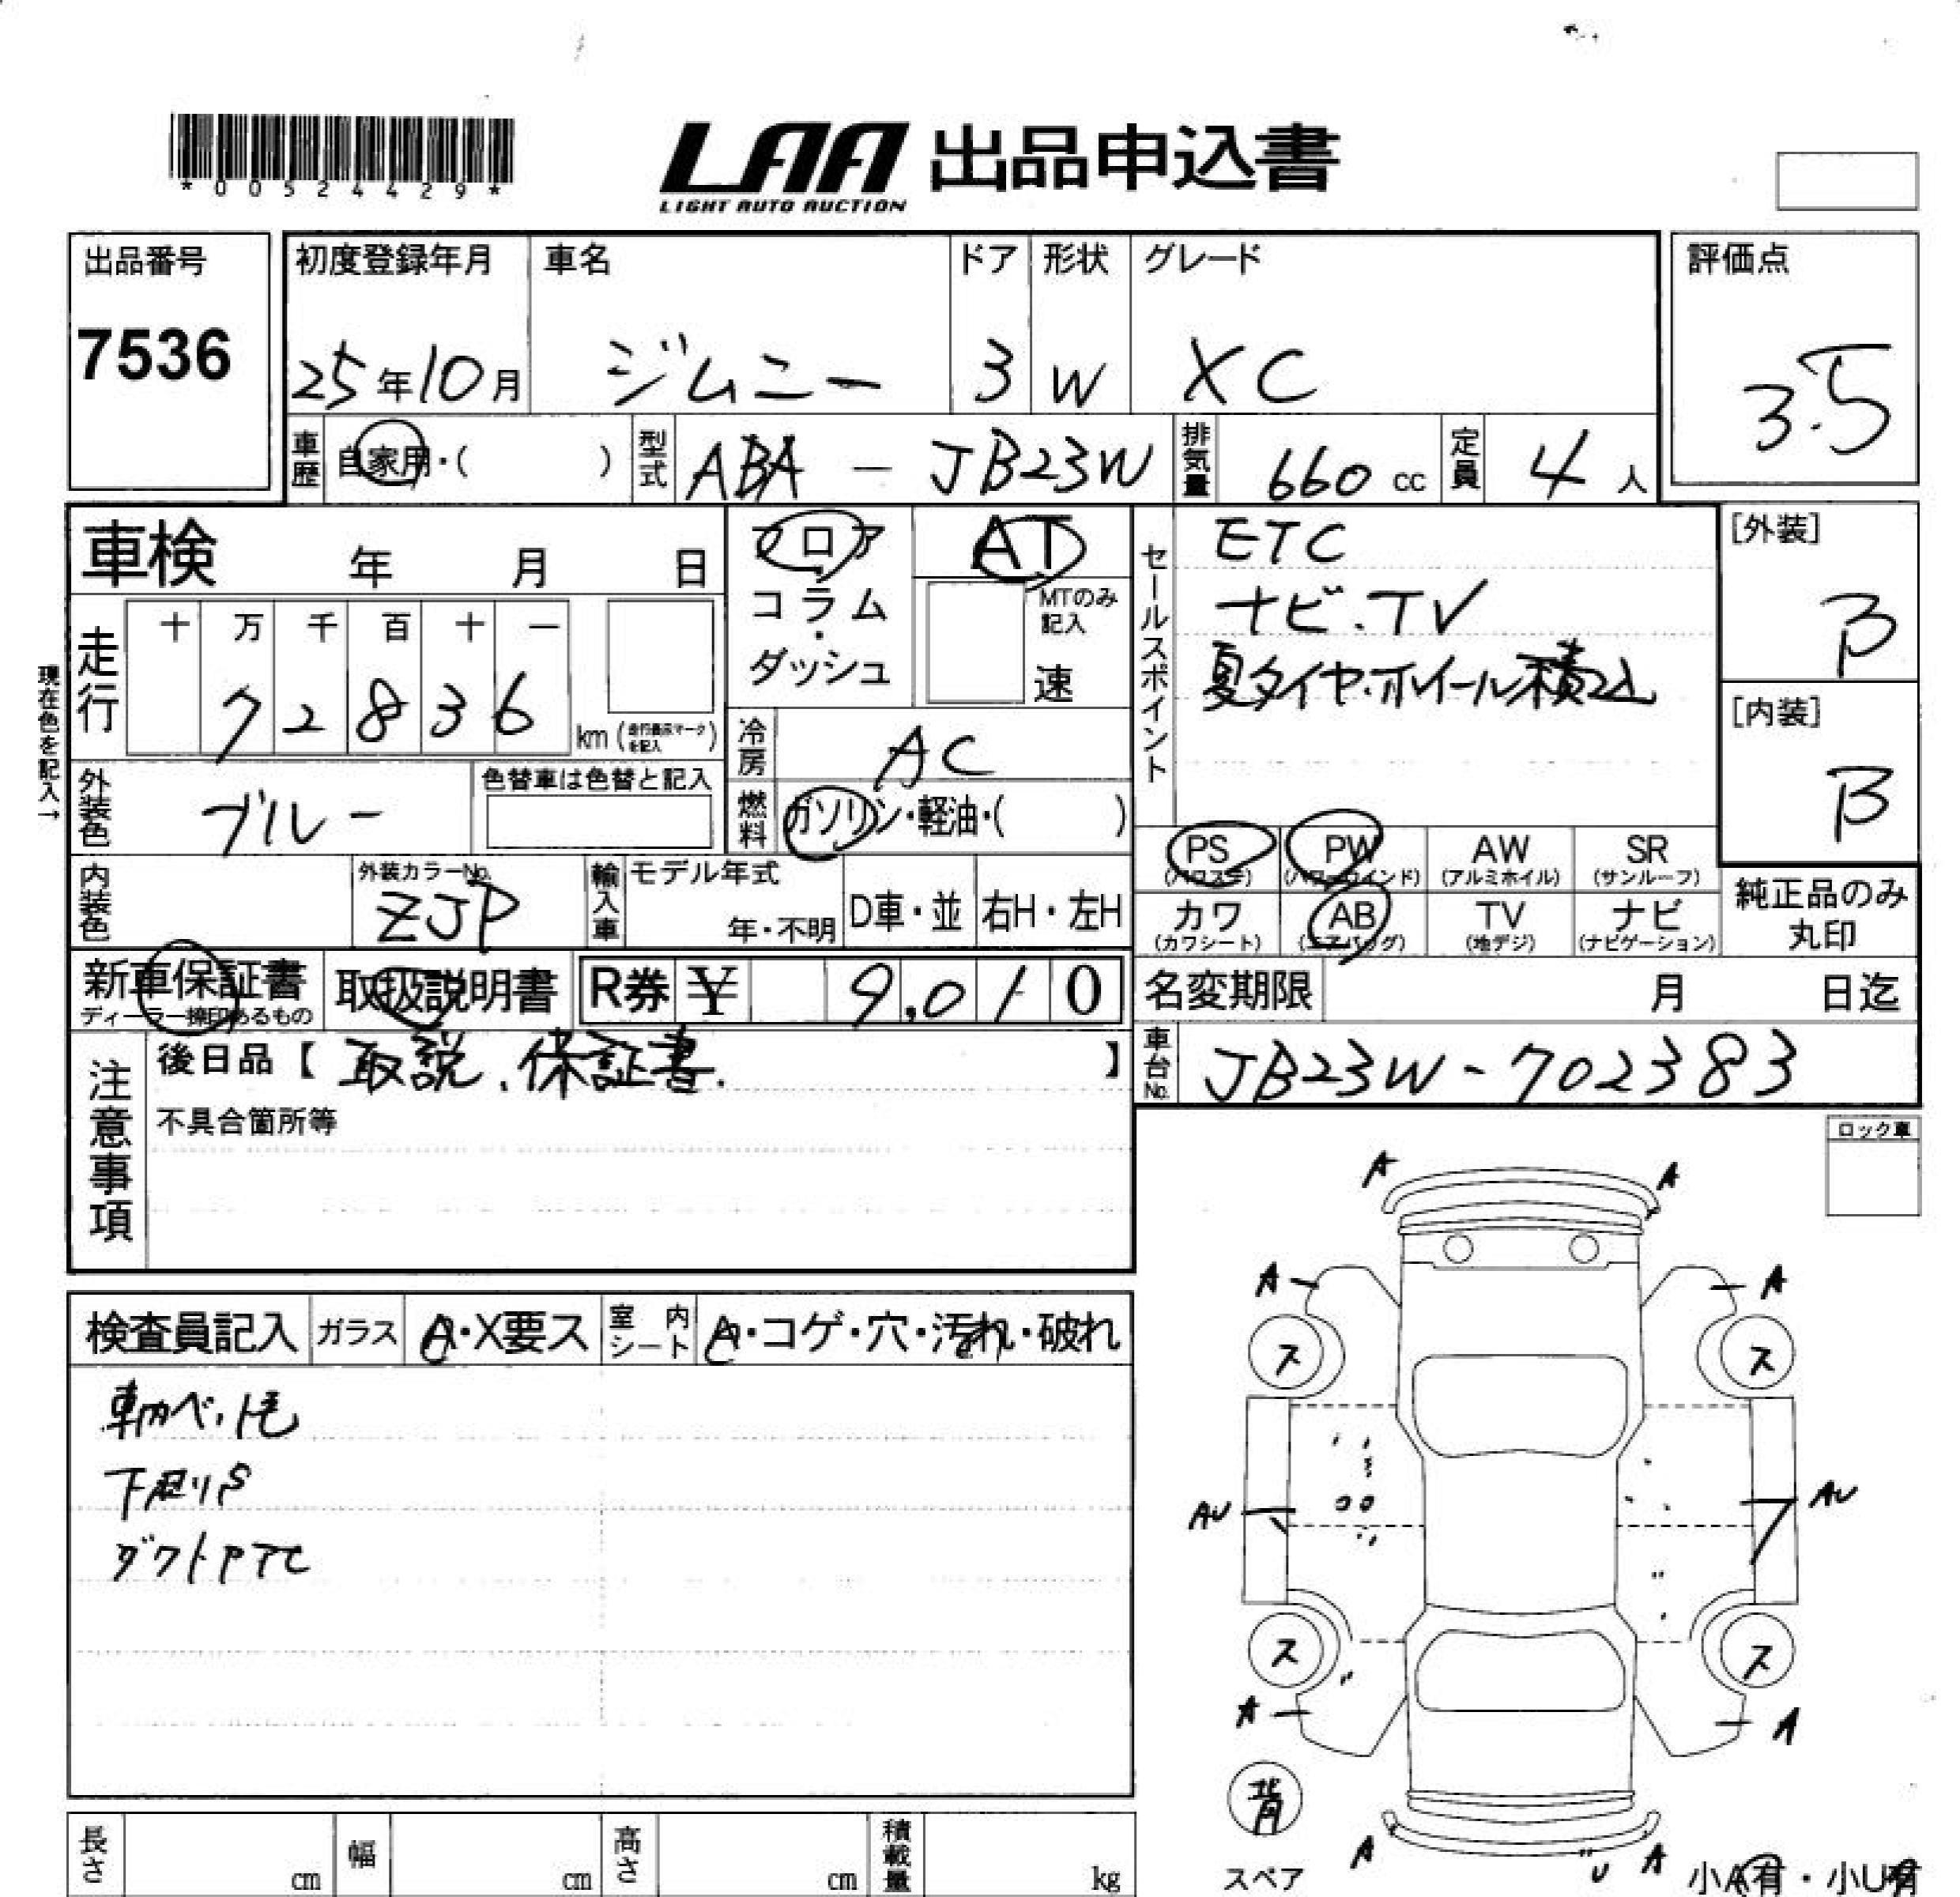 *00524429*
LAA 出品申込書
LIGHT AUTO AUCTION
出品番号
7536
初度登録年月
25年10月
車名
ジムニー
ドア
3
形状
W
グレード
XC
評価点
3.5
車歴
自家用・( )
型式
ABA - JB23W
排気量
660 cc
定員
4 人
車検 年 月 日
フロア
コラム
・
ダッシュ
AT
MTのみ
記入
速
セールスポイント
ETC
ナビ.TV
夏タイヤ.ホイール積込
[外装]
B
[内装]
B
現在色を記入→
走行
十 万 千 百 十 一
72836
km (走行表示マークを記入)
冷房
AC
外装色
ブルー
色替車は色替と記入
燃料
ガソリン・軽油・( )
PS
(パワステ)
PW
(パワーウインド)
AW
(アルミホイル)
SR
(サンルーフ)
カワ
(カワシート)
AB
(エアバッグ)
TV
(地デジ)
ナビ
(ナビゲーション)
純正品のみ
丸印
内装色
外装カラーNo.
ZJP
輸入車
モデル年式
年・不明
D車・並
右H・左H
新車保証書
ディーラー捺印あるもの
取扱説明書
R券 ¥ 9,010
名変期限 月 日迄
注意事項
後日品【取説.保証書.】
車台No.
JB23W-702383
不具合箇所等
ロック車
検査員記入
ガラス
A・X要ス
室内シート
A・コゲ・穴・汚れ・破れ
下廻りS
A A
A A
ス ス
AU AU
ス ス
A A
背
スペア
A U A
小A有・小U有
長さ cm
幅 cm
高さ cm
積載量 kg